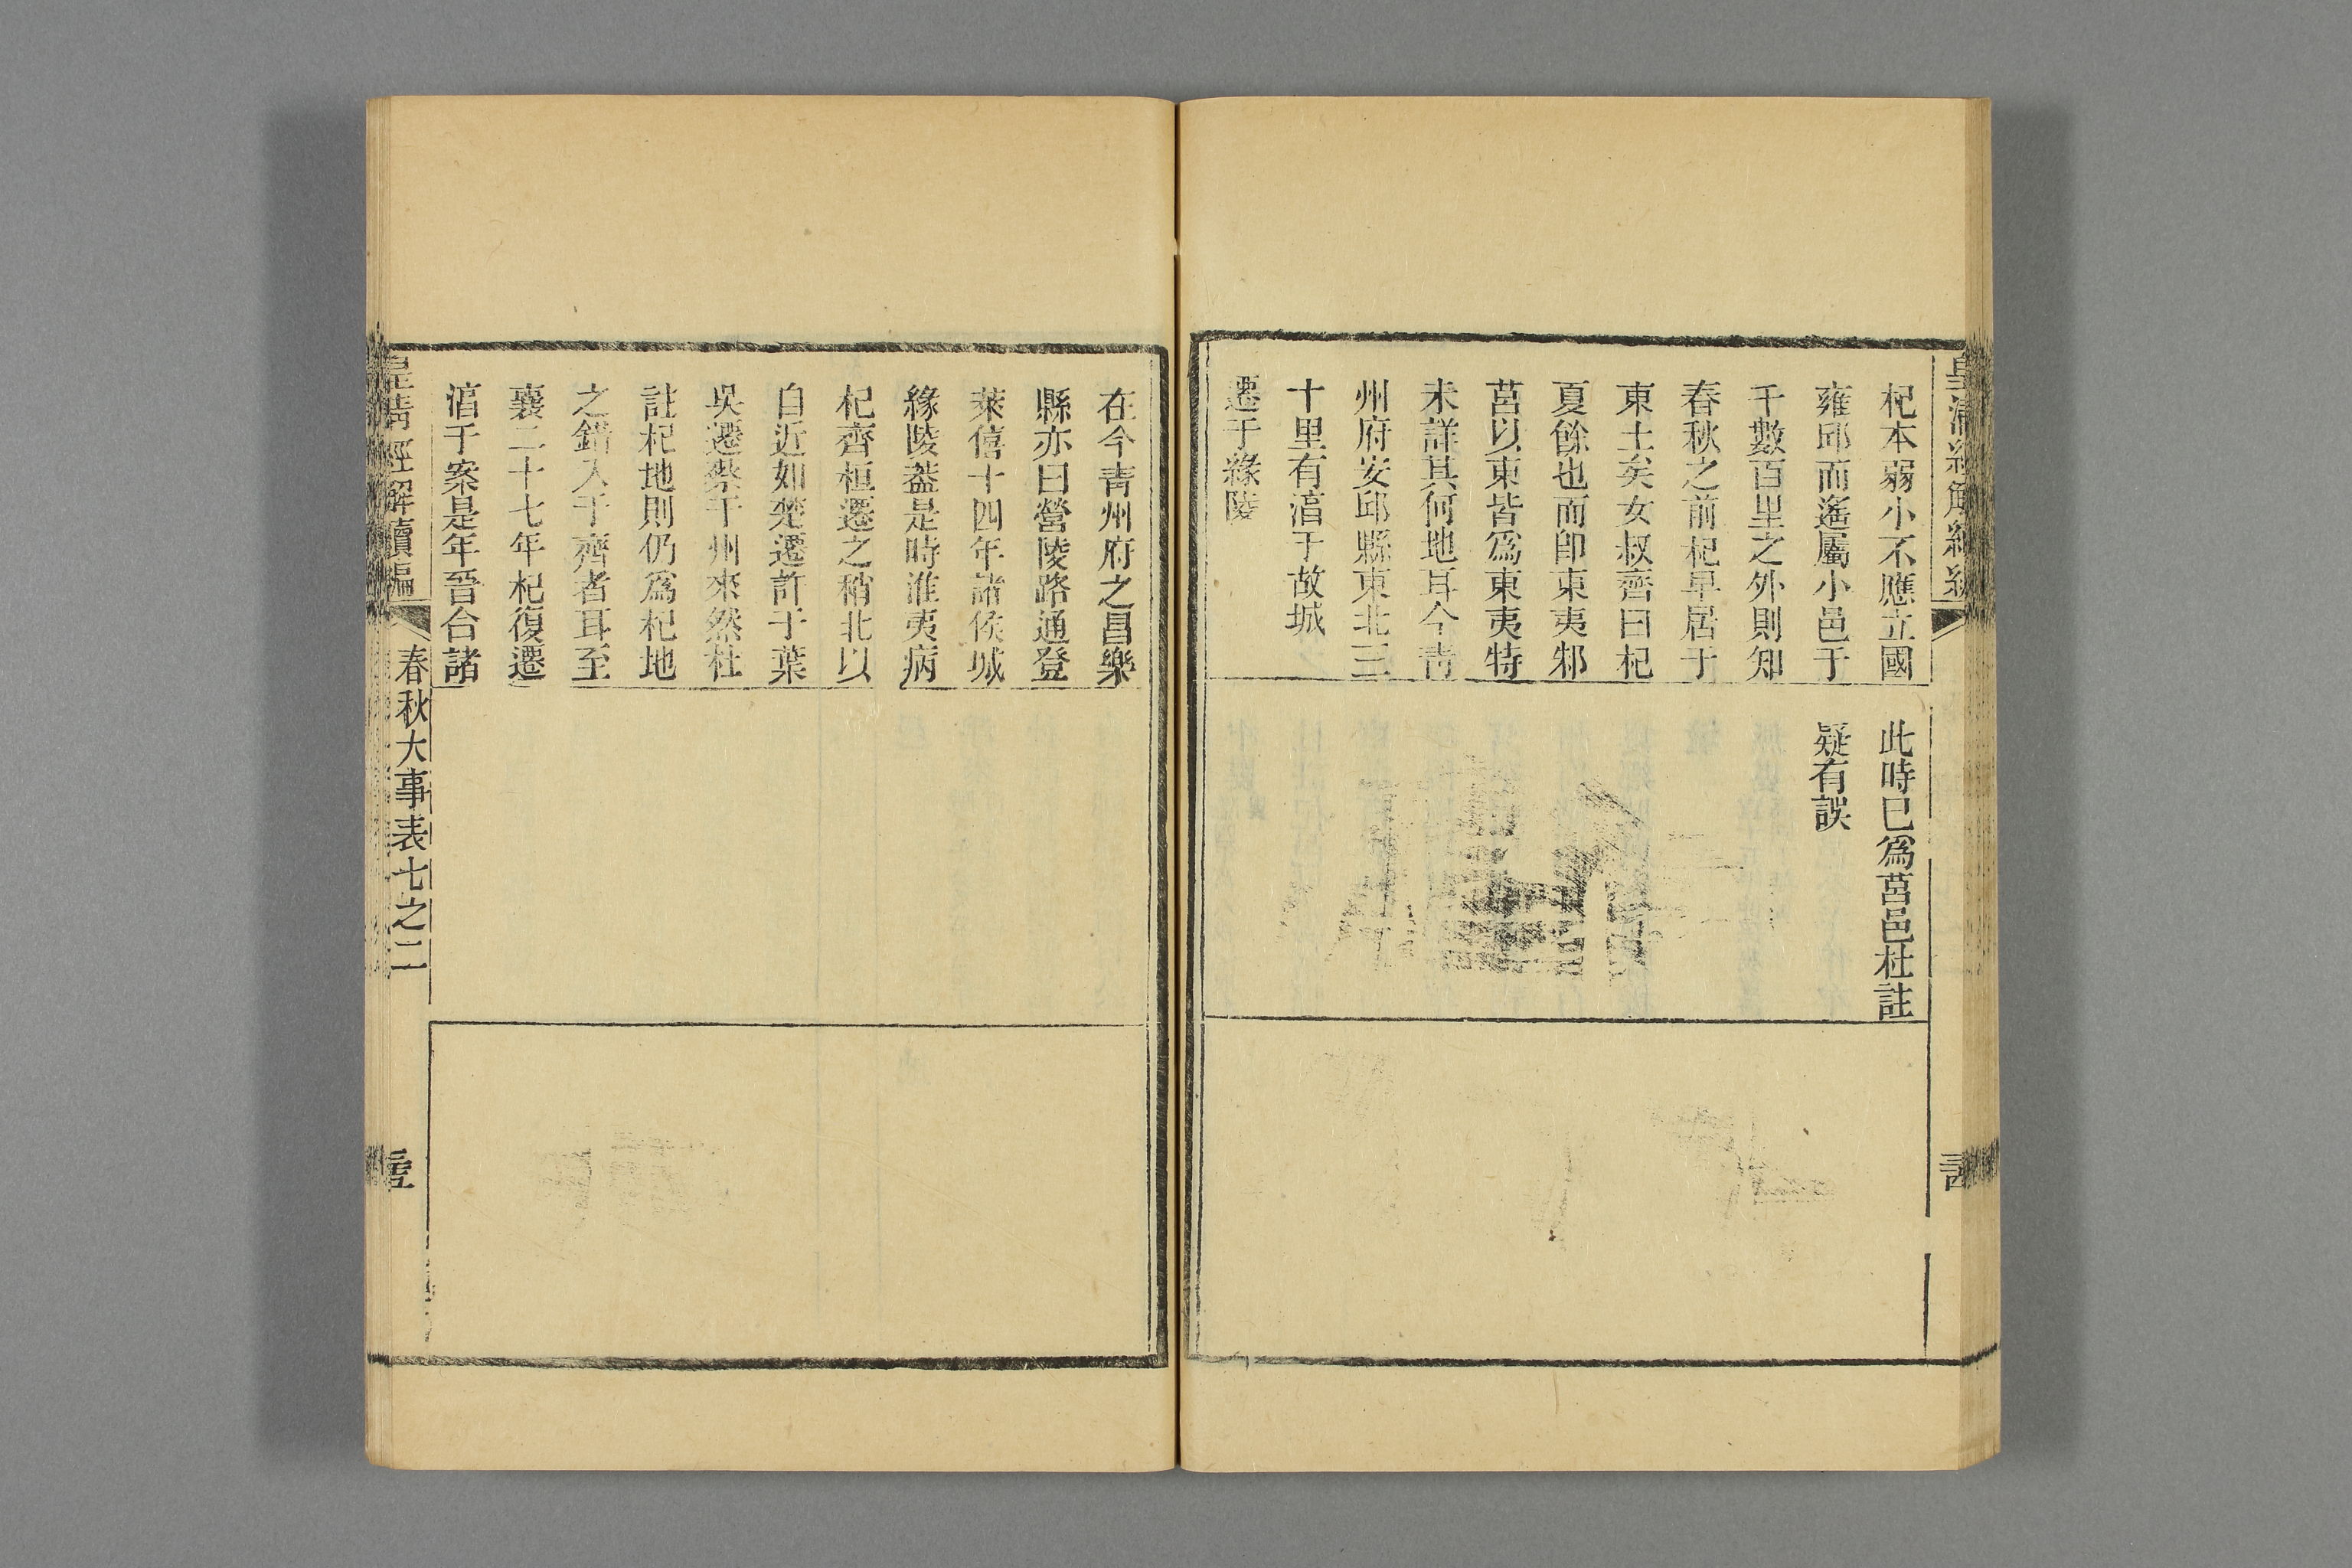 皇清經解續編
杞本弱小不應立國
雍邱而遙屬小邑于
千數百里之外則知
春秋之前杞早居于
東土矣女叔齊曰杞
夏餘也而卽東夷邾
莒以東皆爲東夷特
未詳其何地耳今青
州府安邱縣東北三
十里有淳于故城
遷于緣陵
此時已爲莒邑杜註
疑有誤
在今青州府之昌樂
縣亦曰營陵路通登
萊僖十四年諸侯城
緣陵葢是時淮夷病
杞齊桓遷之稍北以
自近如楚遷許于葉
吳遷蔡于州來然杜
註杞地則仍爲杞地
之錯入于齊者耳至
襄二十七年杞復遷
淳于案是年晉合諸
皇清經解續編
春秋大事表七之二